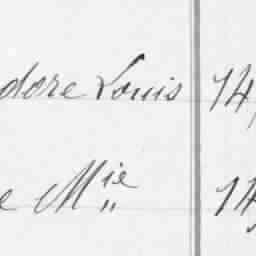 dore Louis 14,
e M^ie 14,